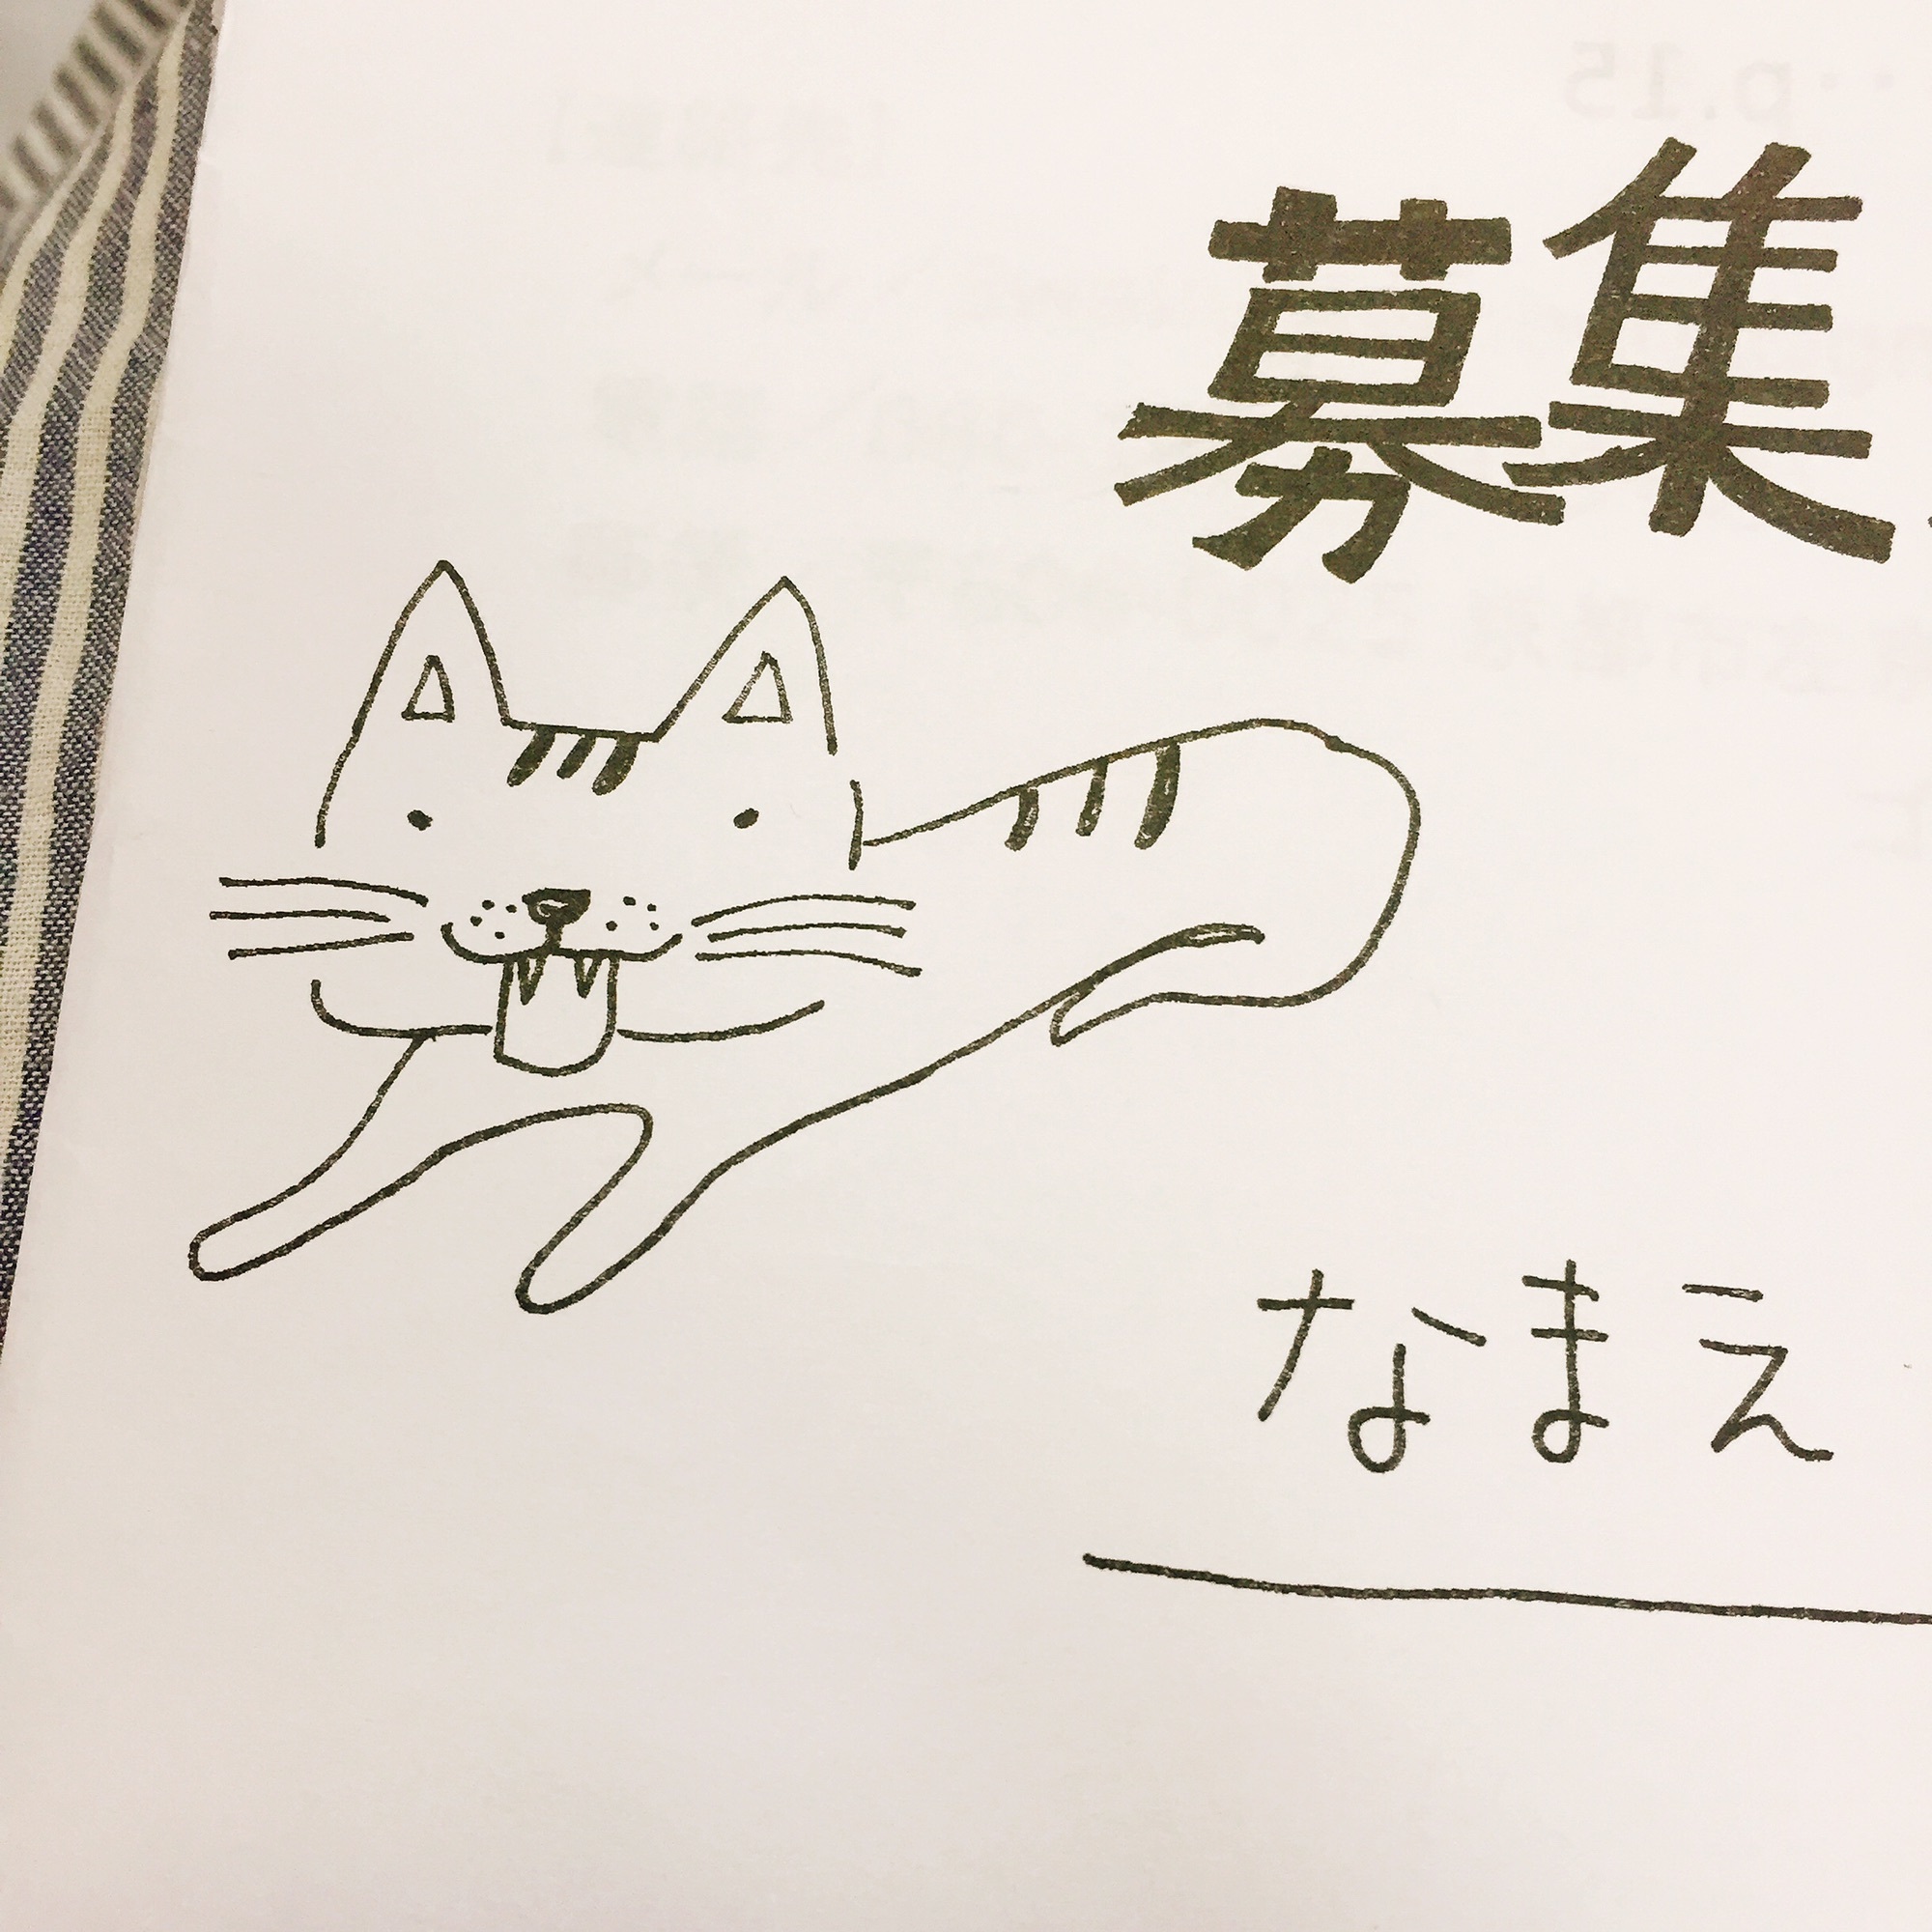 募集
なまえ